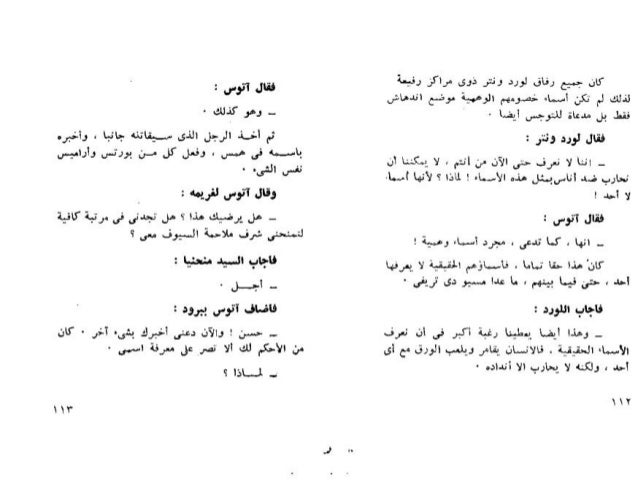 كان جميع رفاق لورد ونتر ذوى مراكز رفيعة
لذلك لم تكن أسماء خصومهم الوهمية موضع اندهاش
فقط بل مدعاة للتوجس أيضا ٠
فقال لورد ونتر :
ــ اننا لا نعرف حتى الآن من أنتم ، لا يمكننا أن
نحارب ضد أناس بمثل هذه الأسماء ! لماذا ؟ لأنها أسماء
لا أحد !
فقال آتوس :
ــ انها ، كما تدعى ، مجرد أسماء وهمية !
كان هذا حقا تماما ، فأسماؤهم الحقيقية لا يعرفها
أحد ، حتى فيما بينهم ، ما عدا مسيو دى تريفى ٠
فأجاب اللورد :
ــ وهذا أيضا يعطينا رغبة أكبر فى أن نعرف
الأسماء الحقيقية ، فالانسان يقامر ويلعب الورق مع أى
أحد ، ولكنه لا يحارب الا أنداده ٠
١١٢
فقال آتوس :
ــ وهو كذلك ٠
ثم أخذ الرجل الذى سيقاتله جانبا ، وأخبره
باسمه فى همس ، وفعل كل من بورتس وأراميس
نفس الشىء ٠
وقال آتوس لغريمه :
ــ هل يرضيك هذا ؟ هل تجدنى فى مرتبة كافية
لتمنحنى شرف ملاحمة السيوف معى ؟
فأجاب السيد منحنيا :
ــ أجل ٠
فأضاف آتوس ببرود :
ــ حسن ! والآن دعنى أخبرك بشىء آخر ٠ كان
من الأحكم لك ألا تصر على معرفة اسمى ٠
ــ لماذا ؟
١١٣